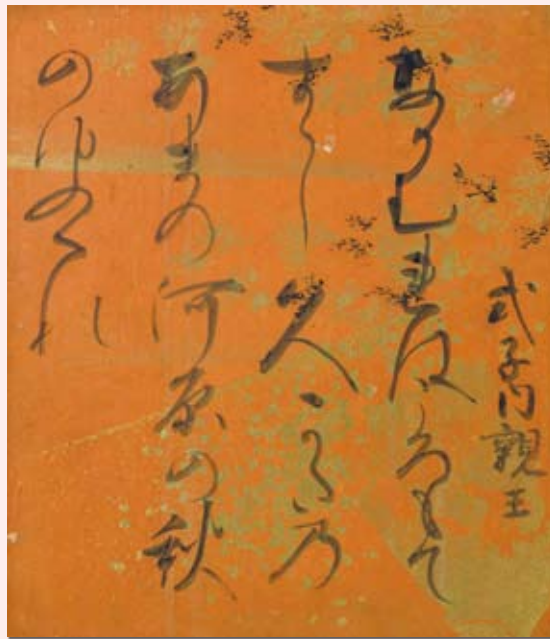 式子内親王
なかむれはころもて
すゝし久かたの
あまの河原の秋
のゆふくれ